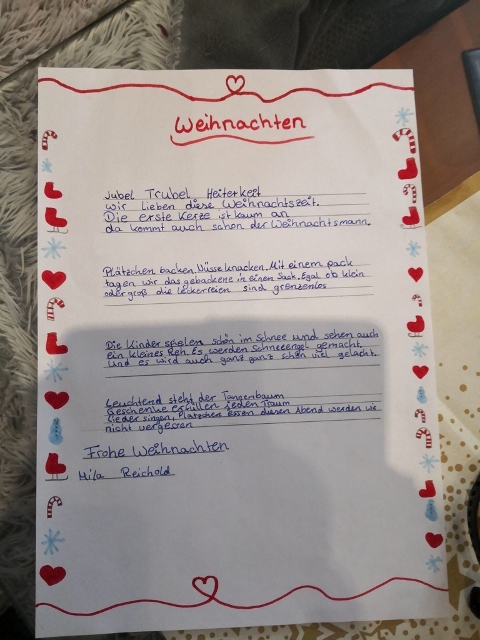 Weihnachten
Jubel Trubel Heiterkeit
wir lieben diese Weihnachtszeit.
Die erste Kerze ist kaum an
da kommt auch schon der Weihnachtsmann.
Plätzchen backen Nüsse knacken. Mit einem pack
tagen wir das gebackene in einen Sack. Egal ob klein
oder groß die leckereien sind grenzenlos
Die Kinder spielen schön im Schnee und sehen auch
ein kleines Reh. Es werden Schneeengel gemacht
und es wird auch ganz ganz schön viel gelacht.
Leuchtend steht der Tangenbaum
Geschenke erfüllen jeden Traum
Lieder singen, Plätzchen essen diesen Abend werden wir
nicht vergessen
Frohe Weihnachten
Mila Reichold